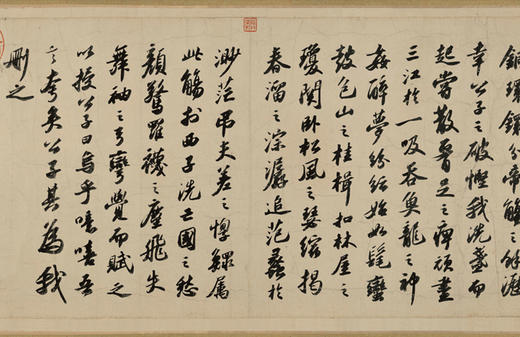 銅分帝觴之餘瀝
幸公子之破慳我洗盞而
起嘗散腰足之痹頑盡
三江於一吸吞魚龍之神
姦醉夢紛紜始如髦蠻
鼓包山之桂楫扣林屋之
瓊關臥松風之瑟縮揭
春溜之淙潺追范蠡於
渺茫弔夫差之惸鰥屬
此觴於西子洗亡國之愁
顏驚羅襪之塵飛失
舞袖之弓彎覺而賦之
以授公子曰烏乎噫嘻吾
言夸矣公子其為我
刪之